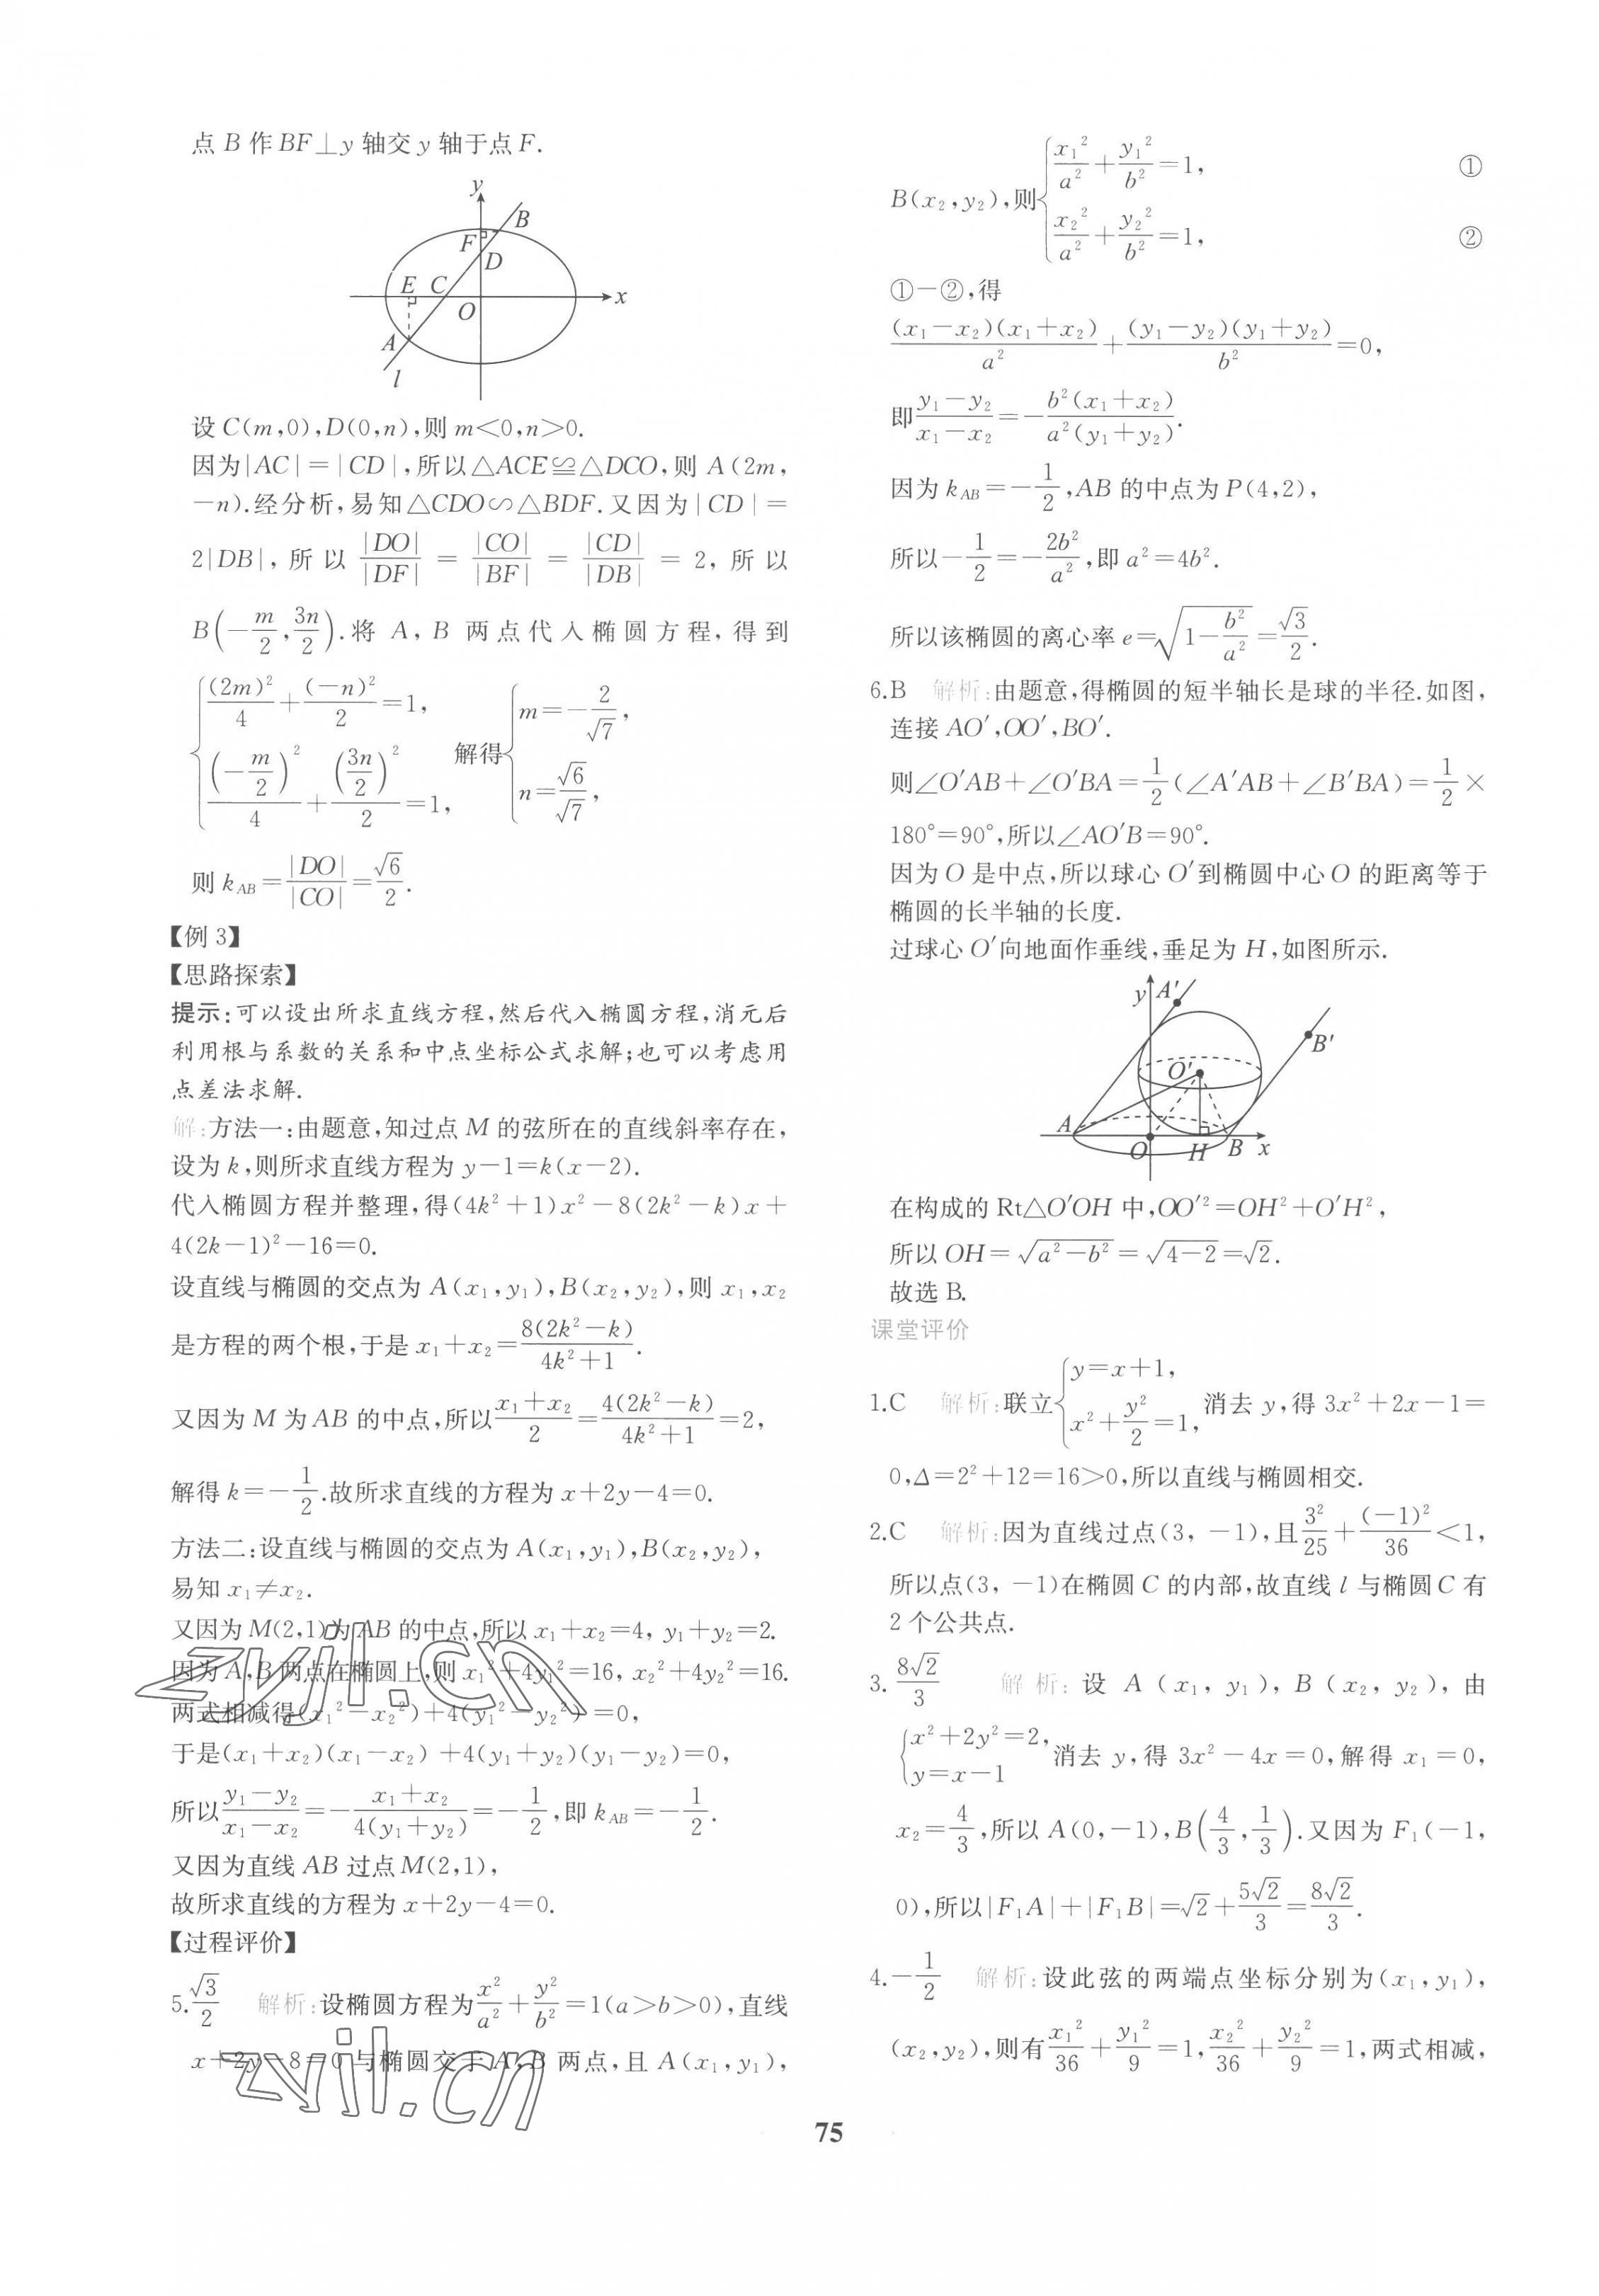 点 B 作 BF⊥y 轴交 y 轴于点 F.
y
B
F
D
E C
x
O
A
l
设 C(m,0),D(0,n),则 m<0,n>0.
因为|AC|=|CD|,所以△ACE≌△DCO,则 A(2m,
-n).经分析,易知△CDO∽△BDF.又因为|CD|=
2|DB|,所以 |DO|/|DF| = |CO|/|BF| = |CD|/|DB| = 2,所以
B(-m/2,3n/2).将 A,B 两点代入椭圆方程,得到
{(2m)²/4+(-n)²/2=1,
(-m/2)²/4+(3n/2)²/2=1, 解得{m=-2/√7,
n=√6/√7,
则 k_AB=|DO|/|CO|=√6/2.
【例 3】
【思路探索】
提示:可以设出所求直线方程,然后代入椭圆方程,消元后
利用根与系数的关系和中点坐标公式求解;也可以考虑用
点差法求解.
解:方法一:由题意,知过点 M 的弦所在的直线斜率存在,
设为 k,则所求直线方程为 y-1=k(x-2).
代入椭圆方程并整理,得(4k²+1)x²-8(2k²-k)x+
4(2k-1)²-16=0.
设直线与椭圆的交点为 A(x₁,y₁),B(x₂,y₂),则 x₁,x₂
是方程的两个根,于是 x₁+x₂=8(2k²-k)/(4k²+1).
又因为 M 为 AB 的中点,所以(x₁+x₂)/2=4(2k²-k)/(4k²+1)=2,
解得 k=-1/2.故所求直线的方程为 x+2y-4=0.
方法二:设直线与椭圆的交点为 A(x₁,y₁),B(x₂,y₂),
易知 x₁≠x₂.
又因为 M(2,1)为 AB 的中点,所以 x₁+x₂=4, y₁+y₂=2.
因为 A,B 两点在椭圆上,则 x₁²+4y₁²=16, x₂²+4y₂²=16.
两式相减得(x₁²-x₂²)+4(y₁²-y₂²)=0,
于是(x₁+x₂)(x₁-x₂)+4(y₁+y₂)(y₁-y₂)=0,
所以(y₁-y₂)/(x₁-x₂)=-(x₁+x₂)/4(y₁+y₂)=-1/2,即 k_AB=-1/2.
又因为直线 AB 过点 M(2,1),
故所求直线的方程为 x+2y-4=0.
【过程评价】
5.√3/2 解析:设椭圆方程为x²/a²+y²/b²=1(a>b>0),直线
x+2y-8=0 与椭圆交于 A,B 两点,且 A(x₁,y₁),
B(x₂,y₂),则{x₁²/a²+y₁²/b²=1, ①
x₂²/a²+y₂²/b²=1, ②
①-②,得
(x₁-x₂)(x₁+x₂)/a²+(y₁-y₂)(y₁+y₂)/b²=0,
即(y₁-y₂)/(x₁-x₂)=-b²(x₁+x₂)/a²(y₁+y₂).
因为 k_AB=-1/2,AB 的中点为 P(4,2),
所以-1/2=-2b²/a²,即 a²=4b².
所以该椭圆的离心率 e=√(1-b²/a²)=√3/2.
6.B 解析:由题意,得椭圆的短半轴长是球的半径.如图,
连接 AO′,OO′,BO′.
则∠O′AB+∠O′BA=1/2(∠A′AB+∠B′BA)=1/2×
180°=90°,所以∠AO′B=90°.
因为 O 是中点,所以球心 O′到椭圆中心 O 的距离等于
椭圆的长半轴的长度.
过球心 O′向地面作垂线,垂足为 H,如图所示.
y A′
B′
O′
A
O H B x
在构成的 Rt△O′OH 中,OO′²=OH²+O′H²,
所以 OH=√(a²-b²)=√(4-2)=√2.
故选 B.
课堂评价
1.C 解析:联立{y=x+1,
x²+y²/2=1, 消去 y,得 3x²+2x-1=
0,Δ=2²+12=16>0,所以直线与椭圆相交.
2.C 解析:因为直线过点(3, -1),且3²/25+(-1)²/36<1,
所以点(3, -1)在椭圆 C 的内部,故直线 l 与椭圆 C 有
2 个公共点.
3.8√2/3 解析:设 A(x₁,y₁),B(x₂,y₂),由
{x²+2y²=2,
y=x-1 消去 y,得 3x²-4x=0,解得 x₁=0,
x₂=4/3,所以 A(0,-1),B(4/3,1/3).又因为 F₁(-1,
0),所以|F₁A|+|F₁B|=√2+5√2/3=8√2/3.
4.-1/2 解析:设此弦的两端点坐标分别为(x₁,y₁),
(x₂,y₂),则有x₁²/36+y₁²/9=1,x₂²/36+y₂²/9=1,两式相减,
zyjl.cn
zyjl.cn
75